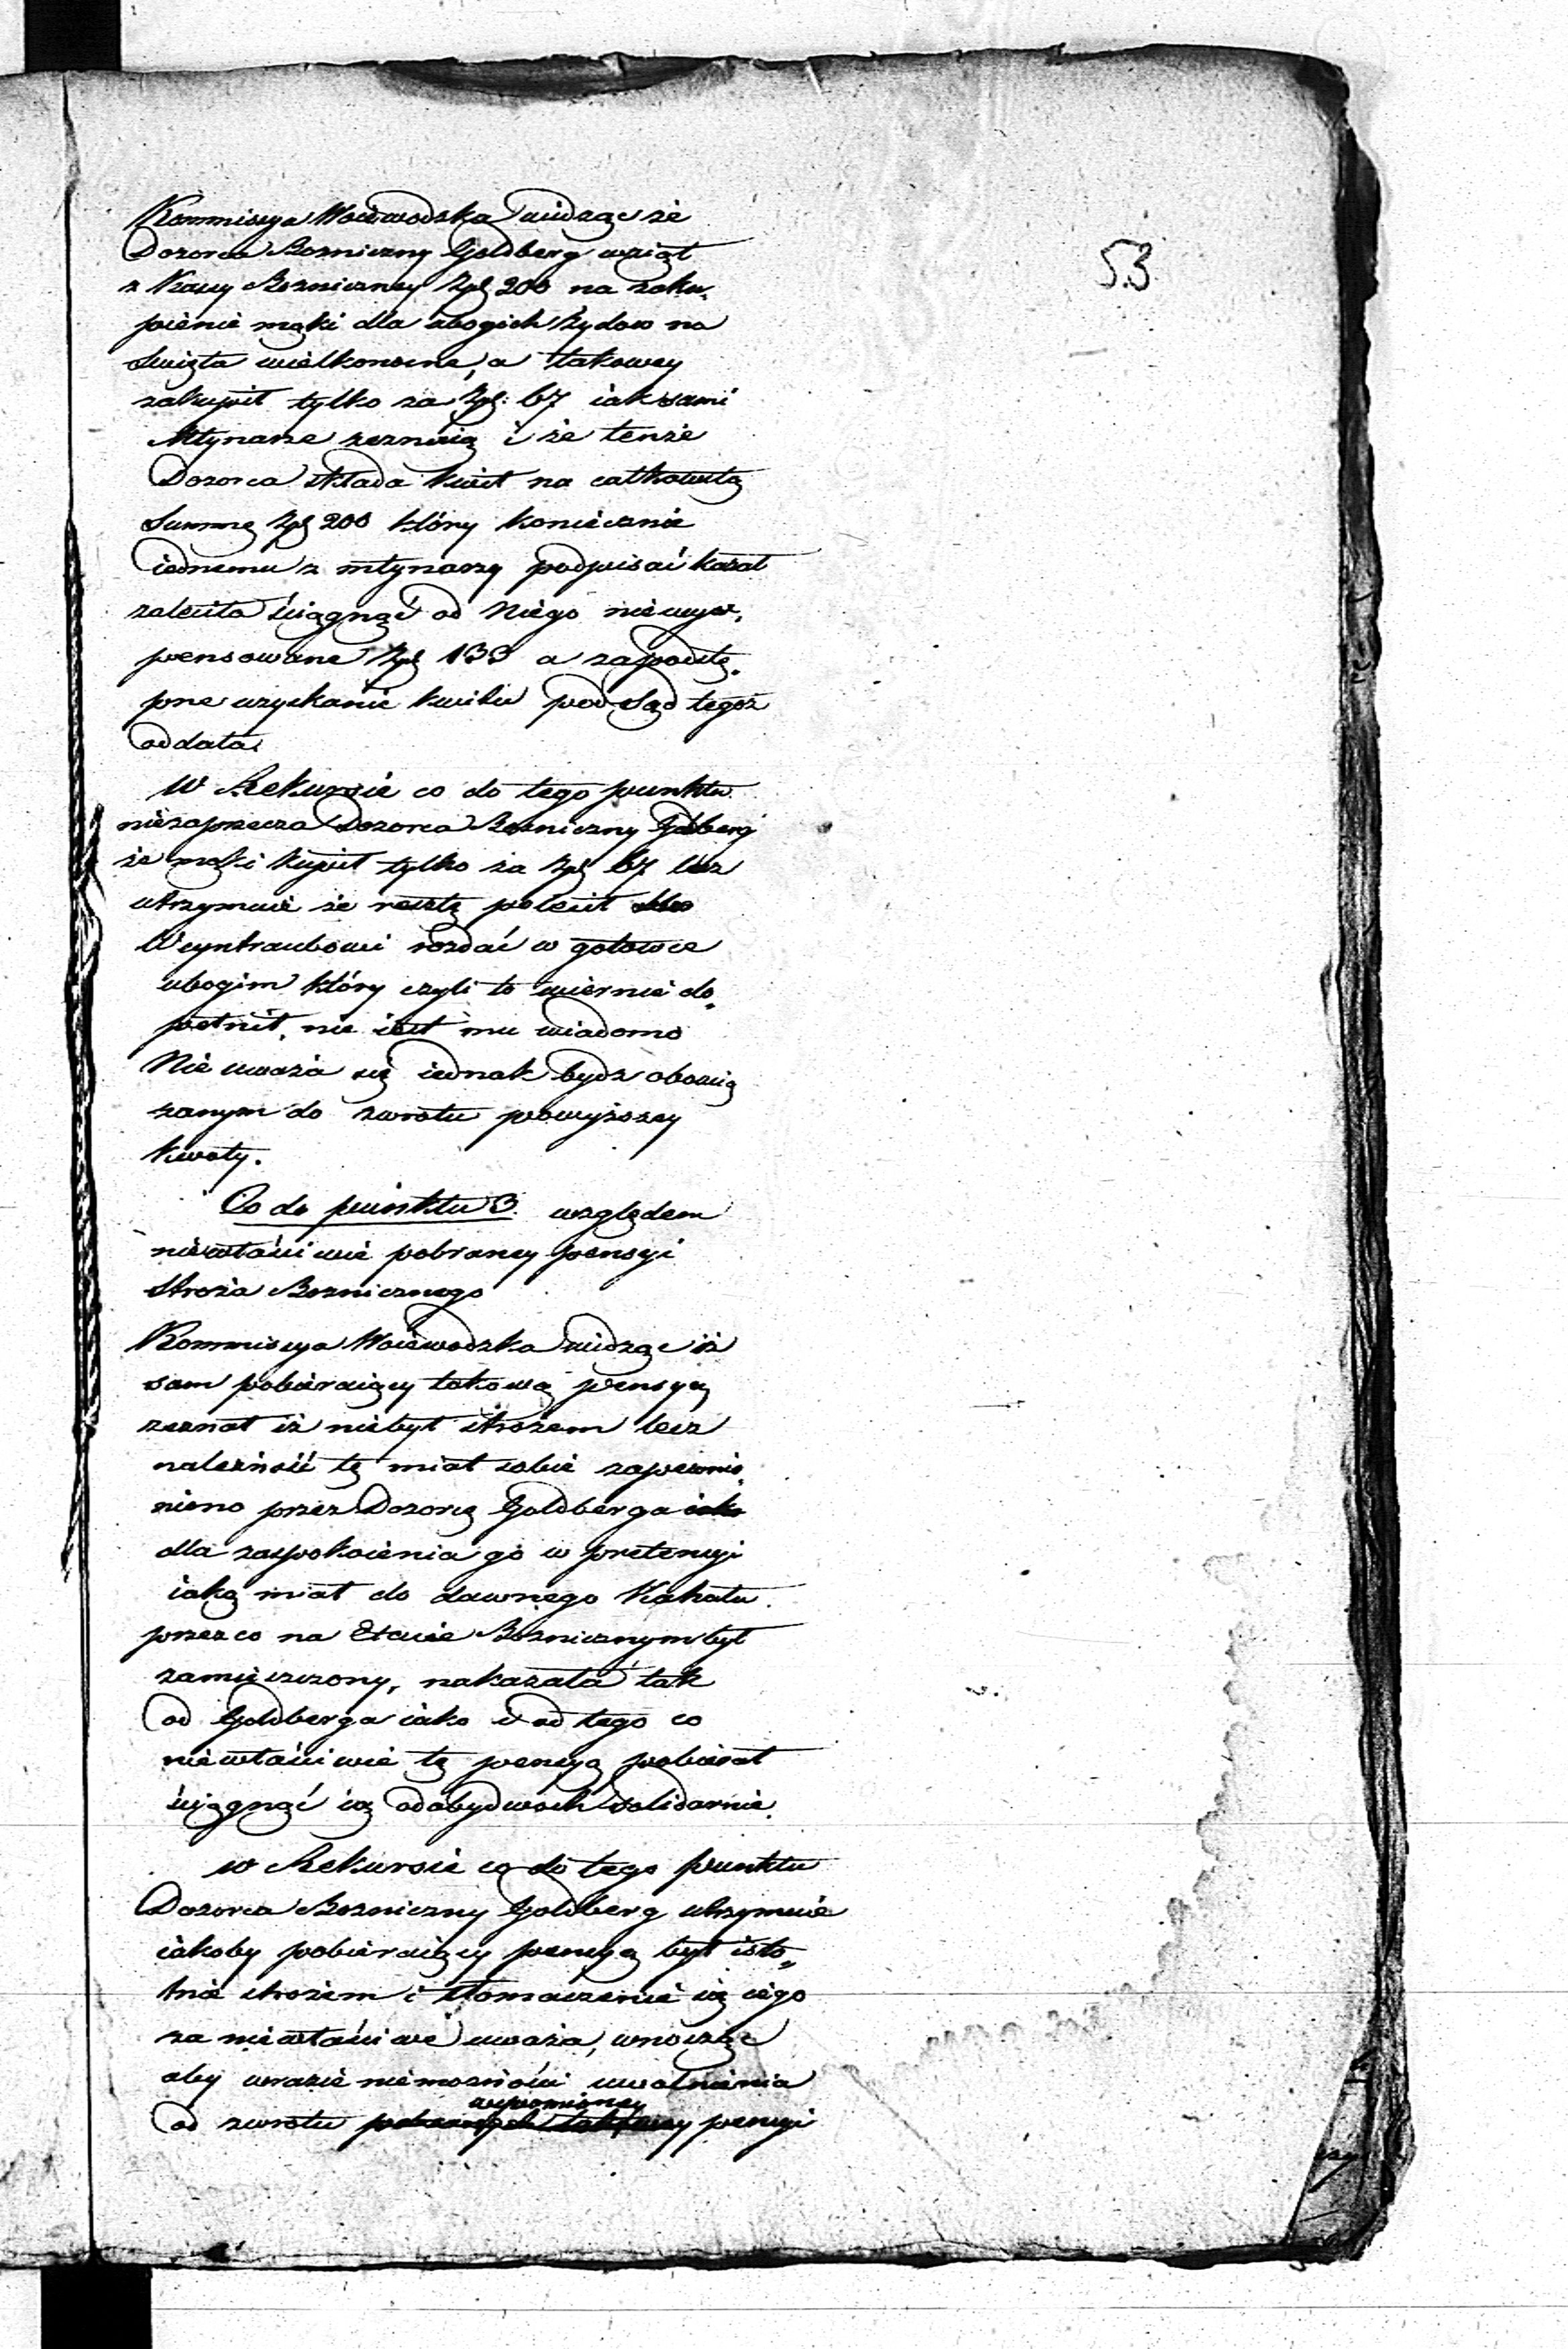 Kommissya Woiewodzka widząc że
Dozorca Bożniczny Goldberg wziął
z Kassy Bożniczney Zpl 200 na zaku„
pienie mąki dla ubogich Żydow na
Swięta wielkonocne, a takowey
zakupił tylko za Zpl: 67 iak sami
Młynarze zeznaią i że tenże
Dozorca składa kwit na całkowitą
Summę Zpl 200 który koniecznie
iednemu z młynarzy podpisać kazał
zaleciła ściągnąć od Niego niewys„
pensowane Zpl 133 a za podstę„
pne uzyskanie kwitu pod Sąd tegoż
oddała.
W Rekursie co do tego punktu
niezaprzecza Dozorca Bożniczny Goldberg
że mąki kupił tylko za Zpl 67 lecz
utrzymuie że resztę polecił
Weyntraubowi rozdać w gotowce
ubogim który czyli to wiernie do„
pełnił, nie iest mu wiadomo
Nie uważa się iednak bydz obowią
zanym do zwrotu powyższey
kwoty.
Co do punktu 3. względem
niewłaściwie pobraney pensyi
Stroża Bożnicznego
Kommissya Woiewodzka widząc iż
sam pobieraiący takową pensyą
zeznał iż niebył stróżem lecz
należność tę miał sobie zapewnio„
niono przez Dozorcę Goldberga iako
dla zaspokoienia go w pretensyi
iaką miał do dawnego Kahału
przez co na Etacie Bożnicznym był
zamieszczony, nakazała tak
od Goldberga iako i od tego co
niewłaściwie tę pensyą pobierał
ściągnąć ią od obydwoch solidarnie.
w Rekursie co do tego punktu
Dozorca Bożniczny Goldberg utrzymuie
iakoby pobieraiący pensyą był isto„
tnie strożem i tłomaczenie się iego
za niewłaściwe uważa, wnosząc
aby wrazie niemożności uwolnienia
wspomnioney
od zwrotu pobranych takowey pensyi
53